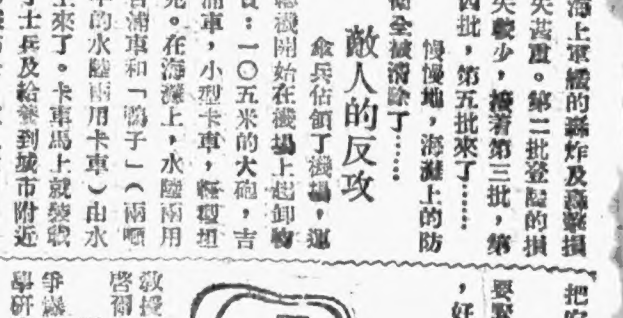 海上軍艦的轟炸及轟擊損
失甚重。第二批登陸的損
失較少,接着第三批,第
四批,第五批來了……
慢慢地,海灘上的防
衛全被清除了……
敵人的反攻
傘兵佔領了機場,運
機開始在機場上起卸物
:一〇五米的大砲,吉
浦車,小型卡車,輕型坦
克。在海灘上,水陸兩用
吉浦車和「鴨子」(兩噸
的水陸兩用卡車)由水
上來了。卡車馬上就裝載
了士兵及給養到城市附近
把
要
,好
教授
啓爾
爭
學研